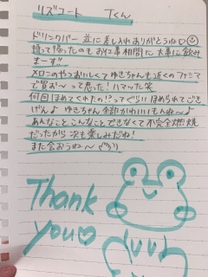 リズコート Tくん
ドリンクバー 並に差し入れありがとうね
帰って帰ったのもお仕事相間に 大事に飲み
まーす!!
メロンのやつおいしくて ゆきちゃんも近くのファミマ
で買お〜って思った! ハマった笑
何回ほめてくれたの!?ってぐらい ほめられてごき
げんよ ゆきちゃん
あんなこと こんなことできなくて 不完全燃焼
だったから 次も楽しみだね!
また会おうね〜
Thank
you